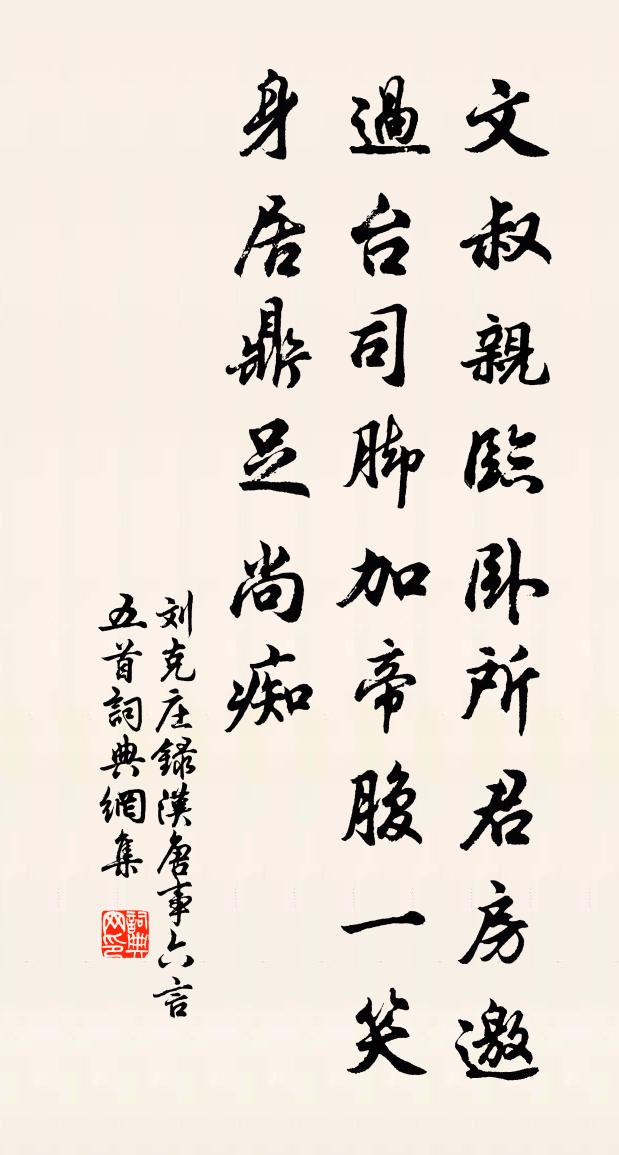 文叔親臨卧所君房邀
過台司脚加帝腹一笑
身居鼎足尚痴
刘克庄録漢唐事六言
五首詞典網集
詞典
网印